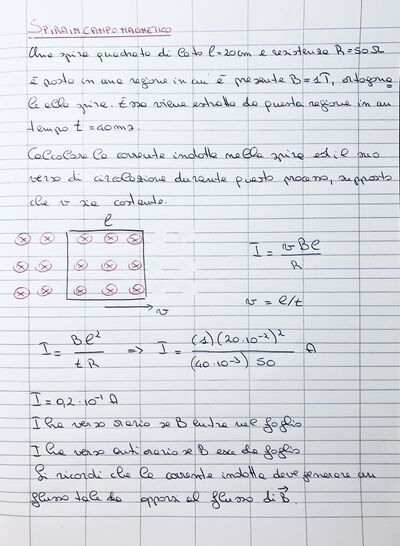 SPIRA IN CAMPO MAGNETICO
Una spira quadrata di lato l=20cm e resistenza R=50Ω
è posta in una regione in cui è presente B=1T, ortogona
le alla spira. Essa viene estratta da questa regione in un
tempo t=40ms.
Calcolare la corrente indotta nella spira ed il suo
verso di circolazione durante questo processo, supposto
che v sia costante.
l
I = vBl / R
v
v = l/t
I = Bl² / tR => I = (1)(20·10⁻²)² / (40·10⁻³) 50 A
I = 0,2·10⁻¹ A
I ha verso orario se B entra nel foglio
I ha verso antiorario se B esce dal foglio
Si ricordi che la corrente indotta deve generare un
flusso tale da opporsi al flusso di B⃗.